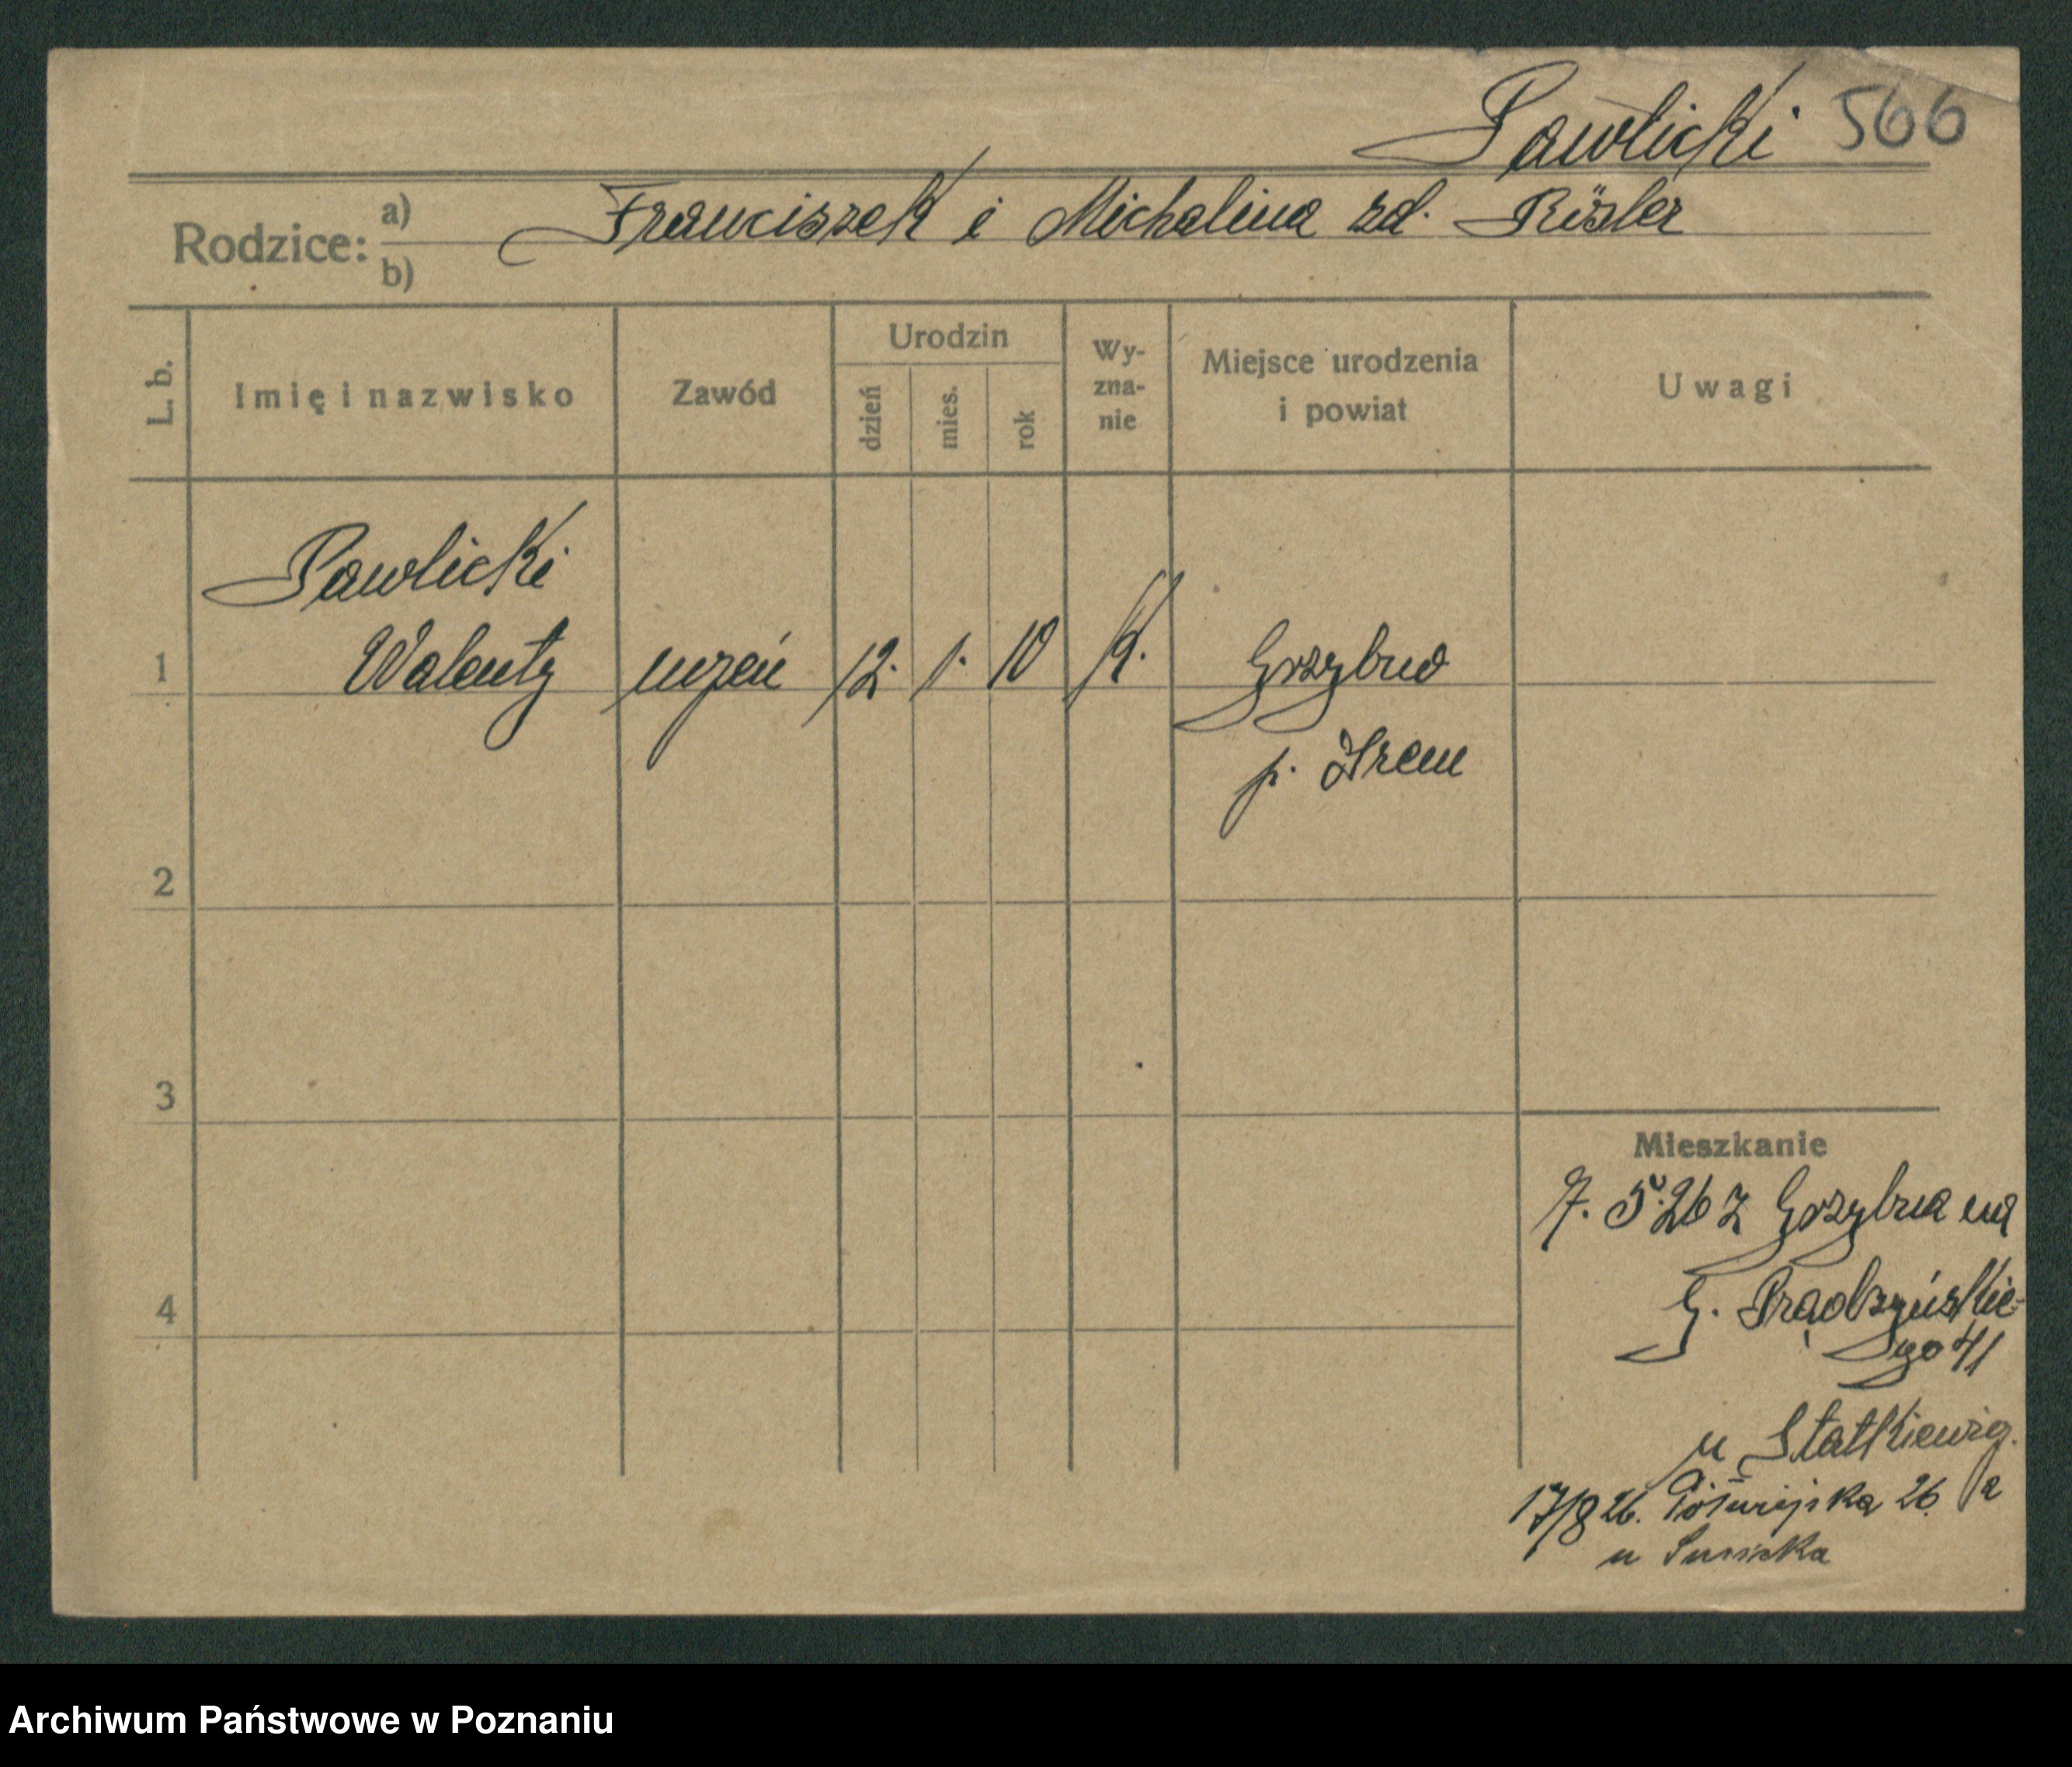 Pawlicki 566
Rodzice: a) Franciszek i Michalina zd. Rösler
b)
L. b. Imię i nazwisko Zawód Urodzin dzień mies. rok Wy-zna-nie Miejsce urodzenia i powiat Uwagi
Pawlicki
1 Walenty uczeń 12. 1. 10 k. Grzybno
p. Śrem
2
3
Mieszkanie
7. 5. 26 z Grzybna na
4 G. Prądzyńskie-
go 41
u Statkiewicz.
17/8 26. 26
u
Archiwum Państwowe w Poznaniu